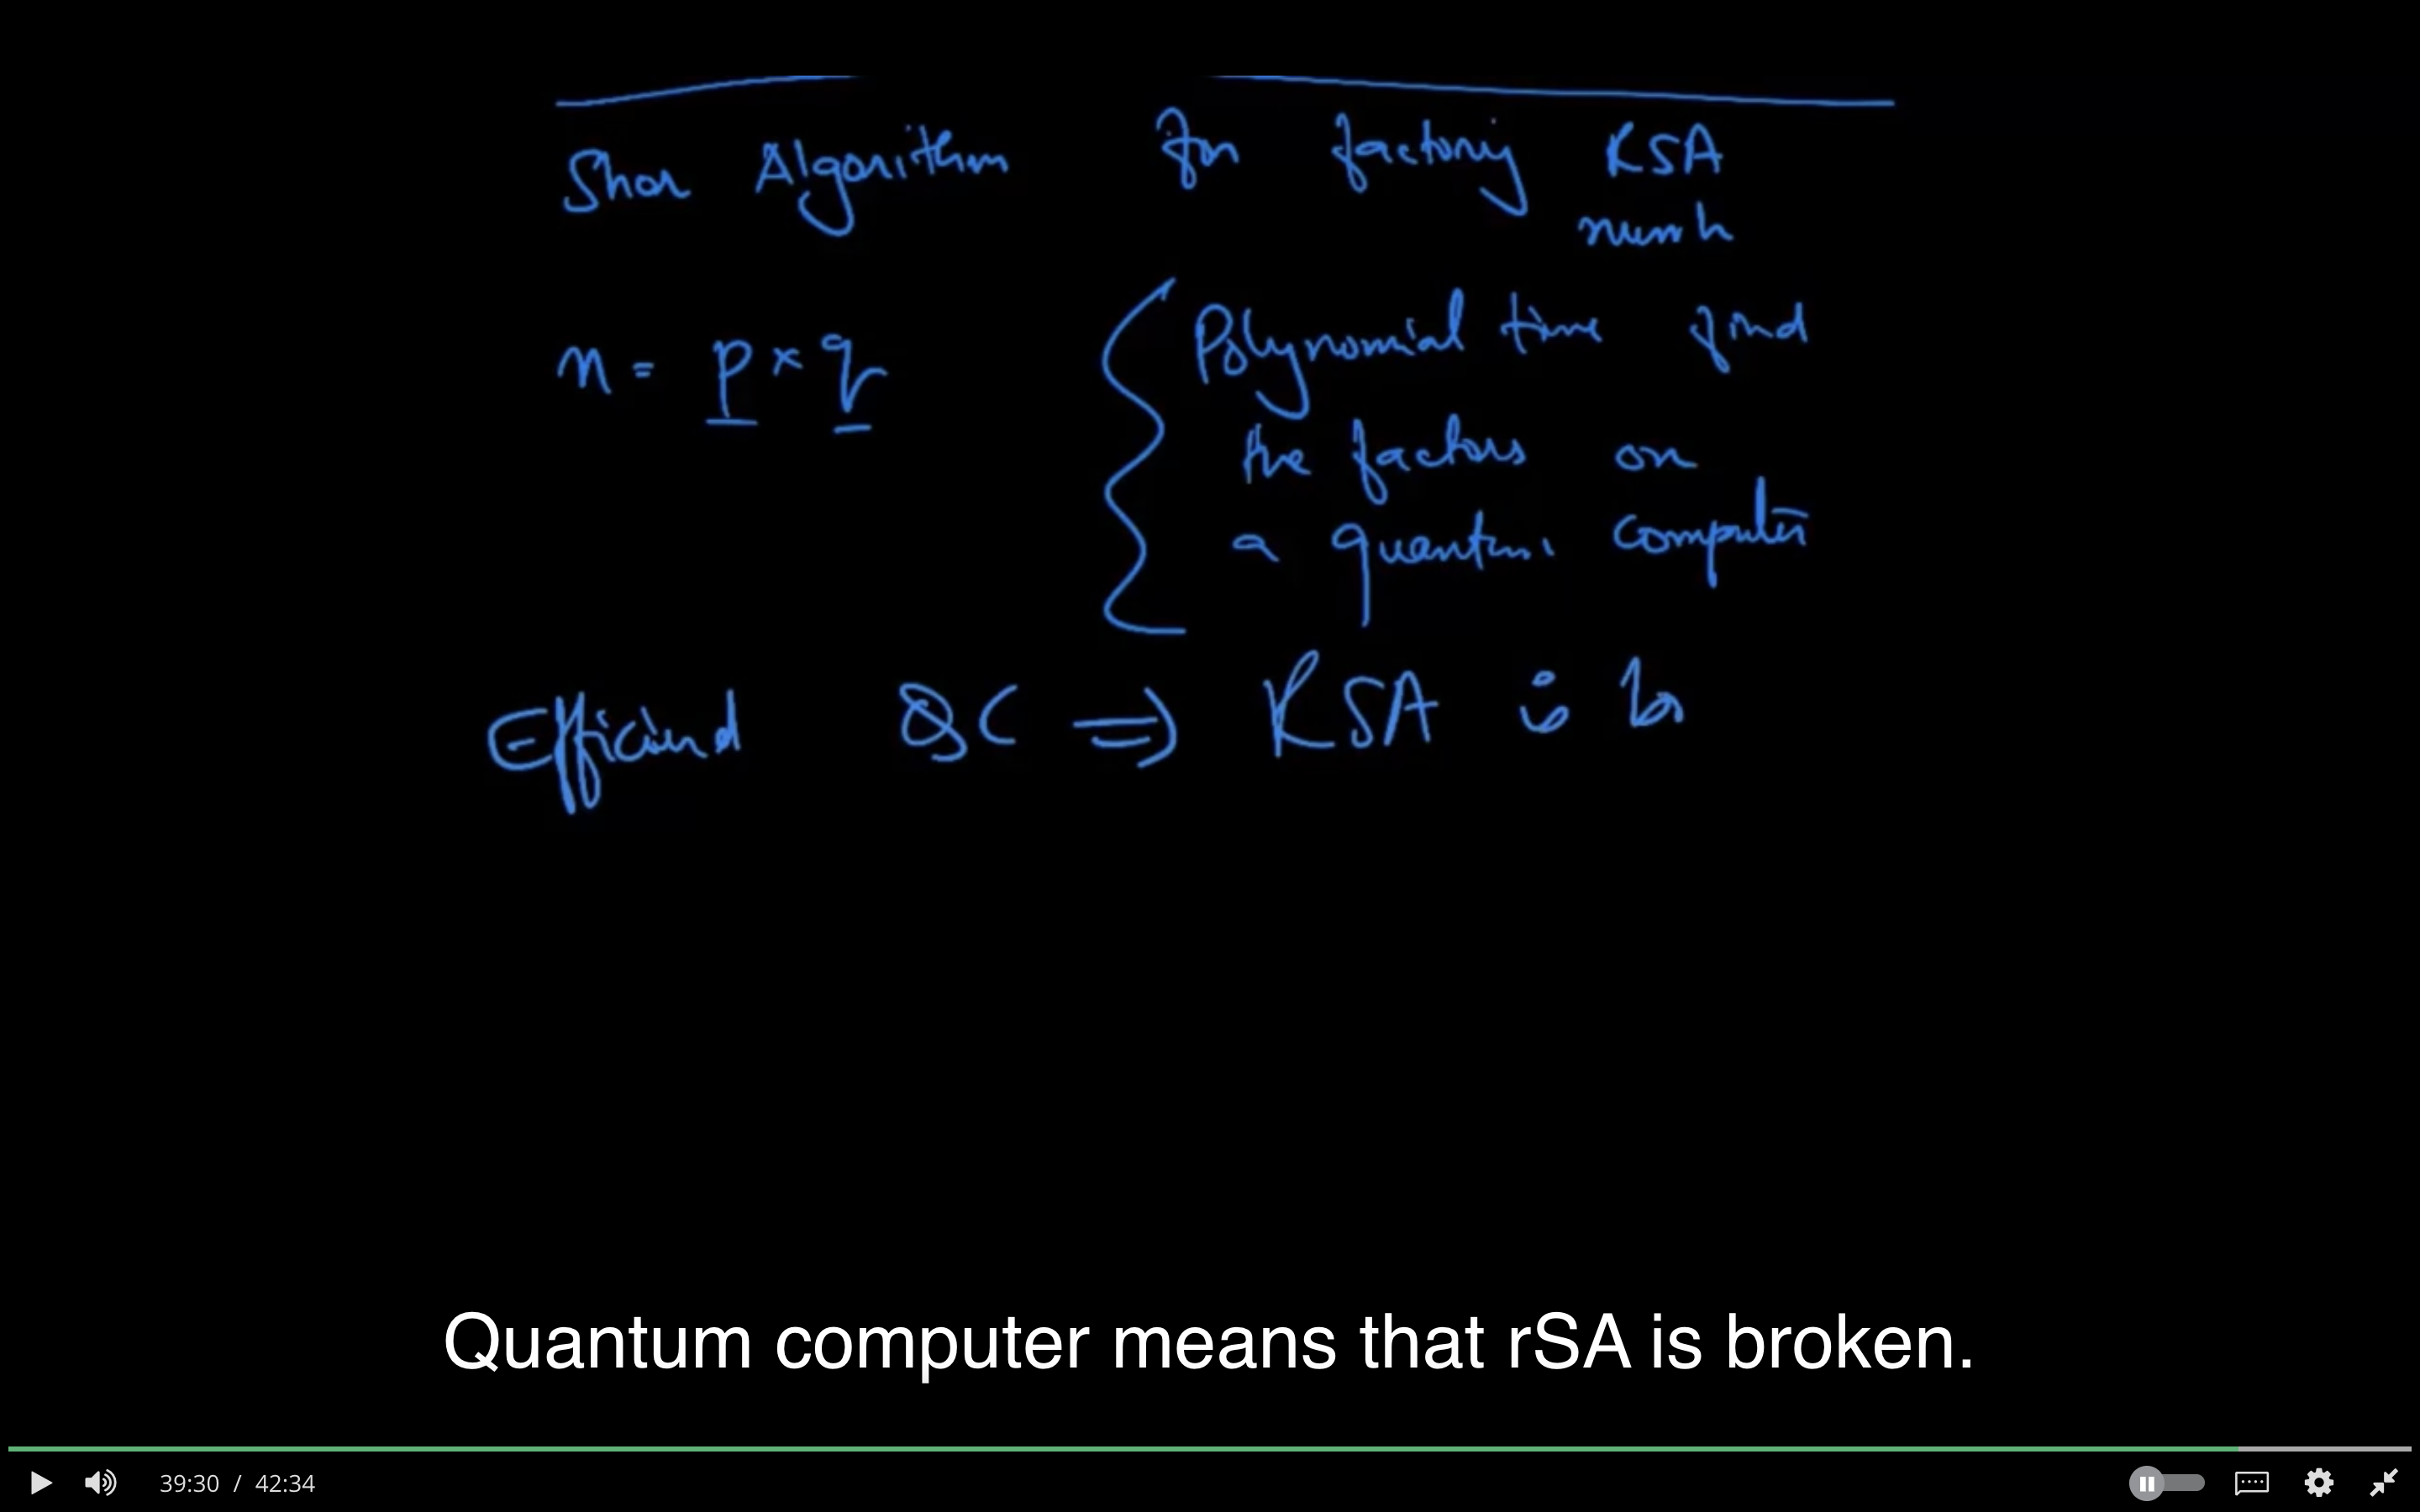 Shor Algorithm for factoring RSA
numb
n = p × q
Polynomial time find
the factors on
a quantum computer
Efficient QC ⇒ RSA is br
Quantum computer means that rSA is broken.
39:30 / 42:34